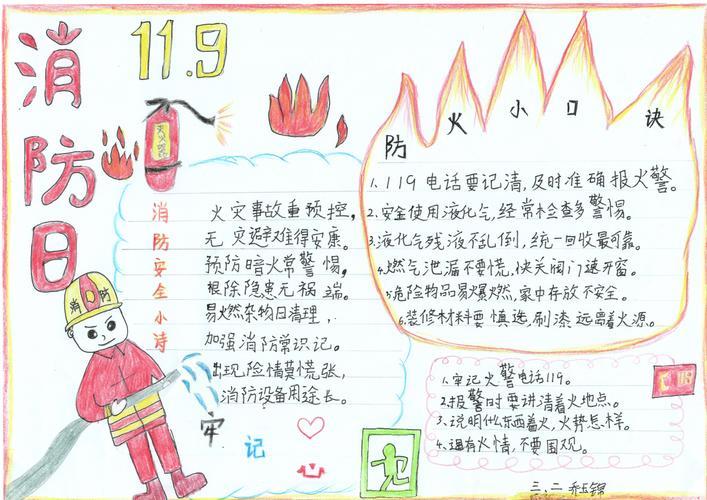 消防日
11.9
灭火器
消防
消防安全小诗
火灾事故重预控，
无灾避难得安康。
预防暗火常警惕，
根除隐患无祸端。
易燃杂物日清理，
加强消防常识记。
出现险情莫慌张，
消防设备用途长。
牢记
防火小口诀
1.119电话要记清，及时准确报火警。
2.安全使用液化气，经常检查多警惕。
3.液化气残液不乱倒，统一回收最可靠。
4.燃气泄漏不要慌，快关阀门速开窗。
5.危险物品易爆燃，家中存放不安全。
6.装修材料要慎选，刷漆远离着火源。
1.牢记火警电话119。
2.报警时要讲清着火地点。
3.说明什么东西着火，火势怎样。
4.遇有火情，不要围观。
119
三.二